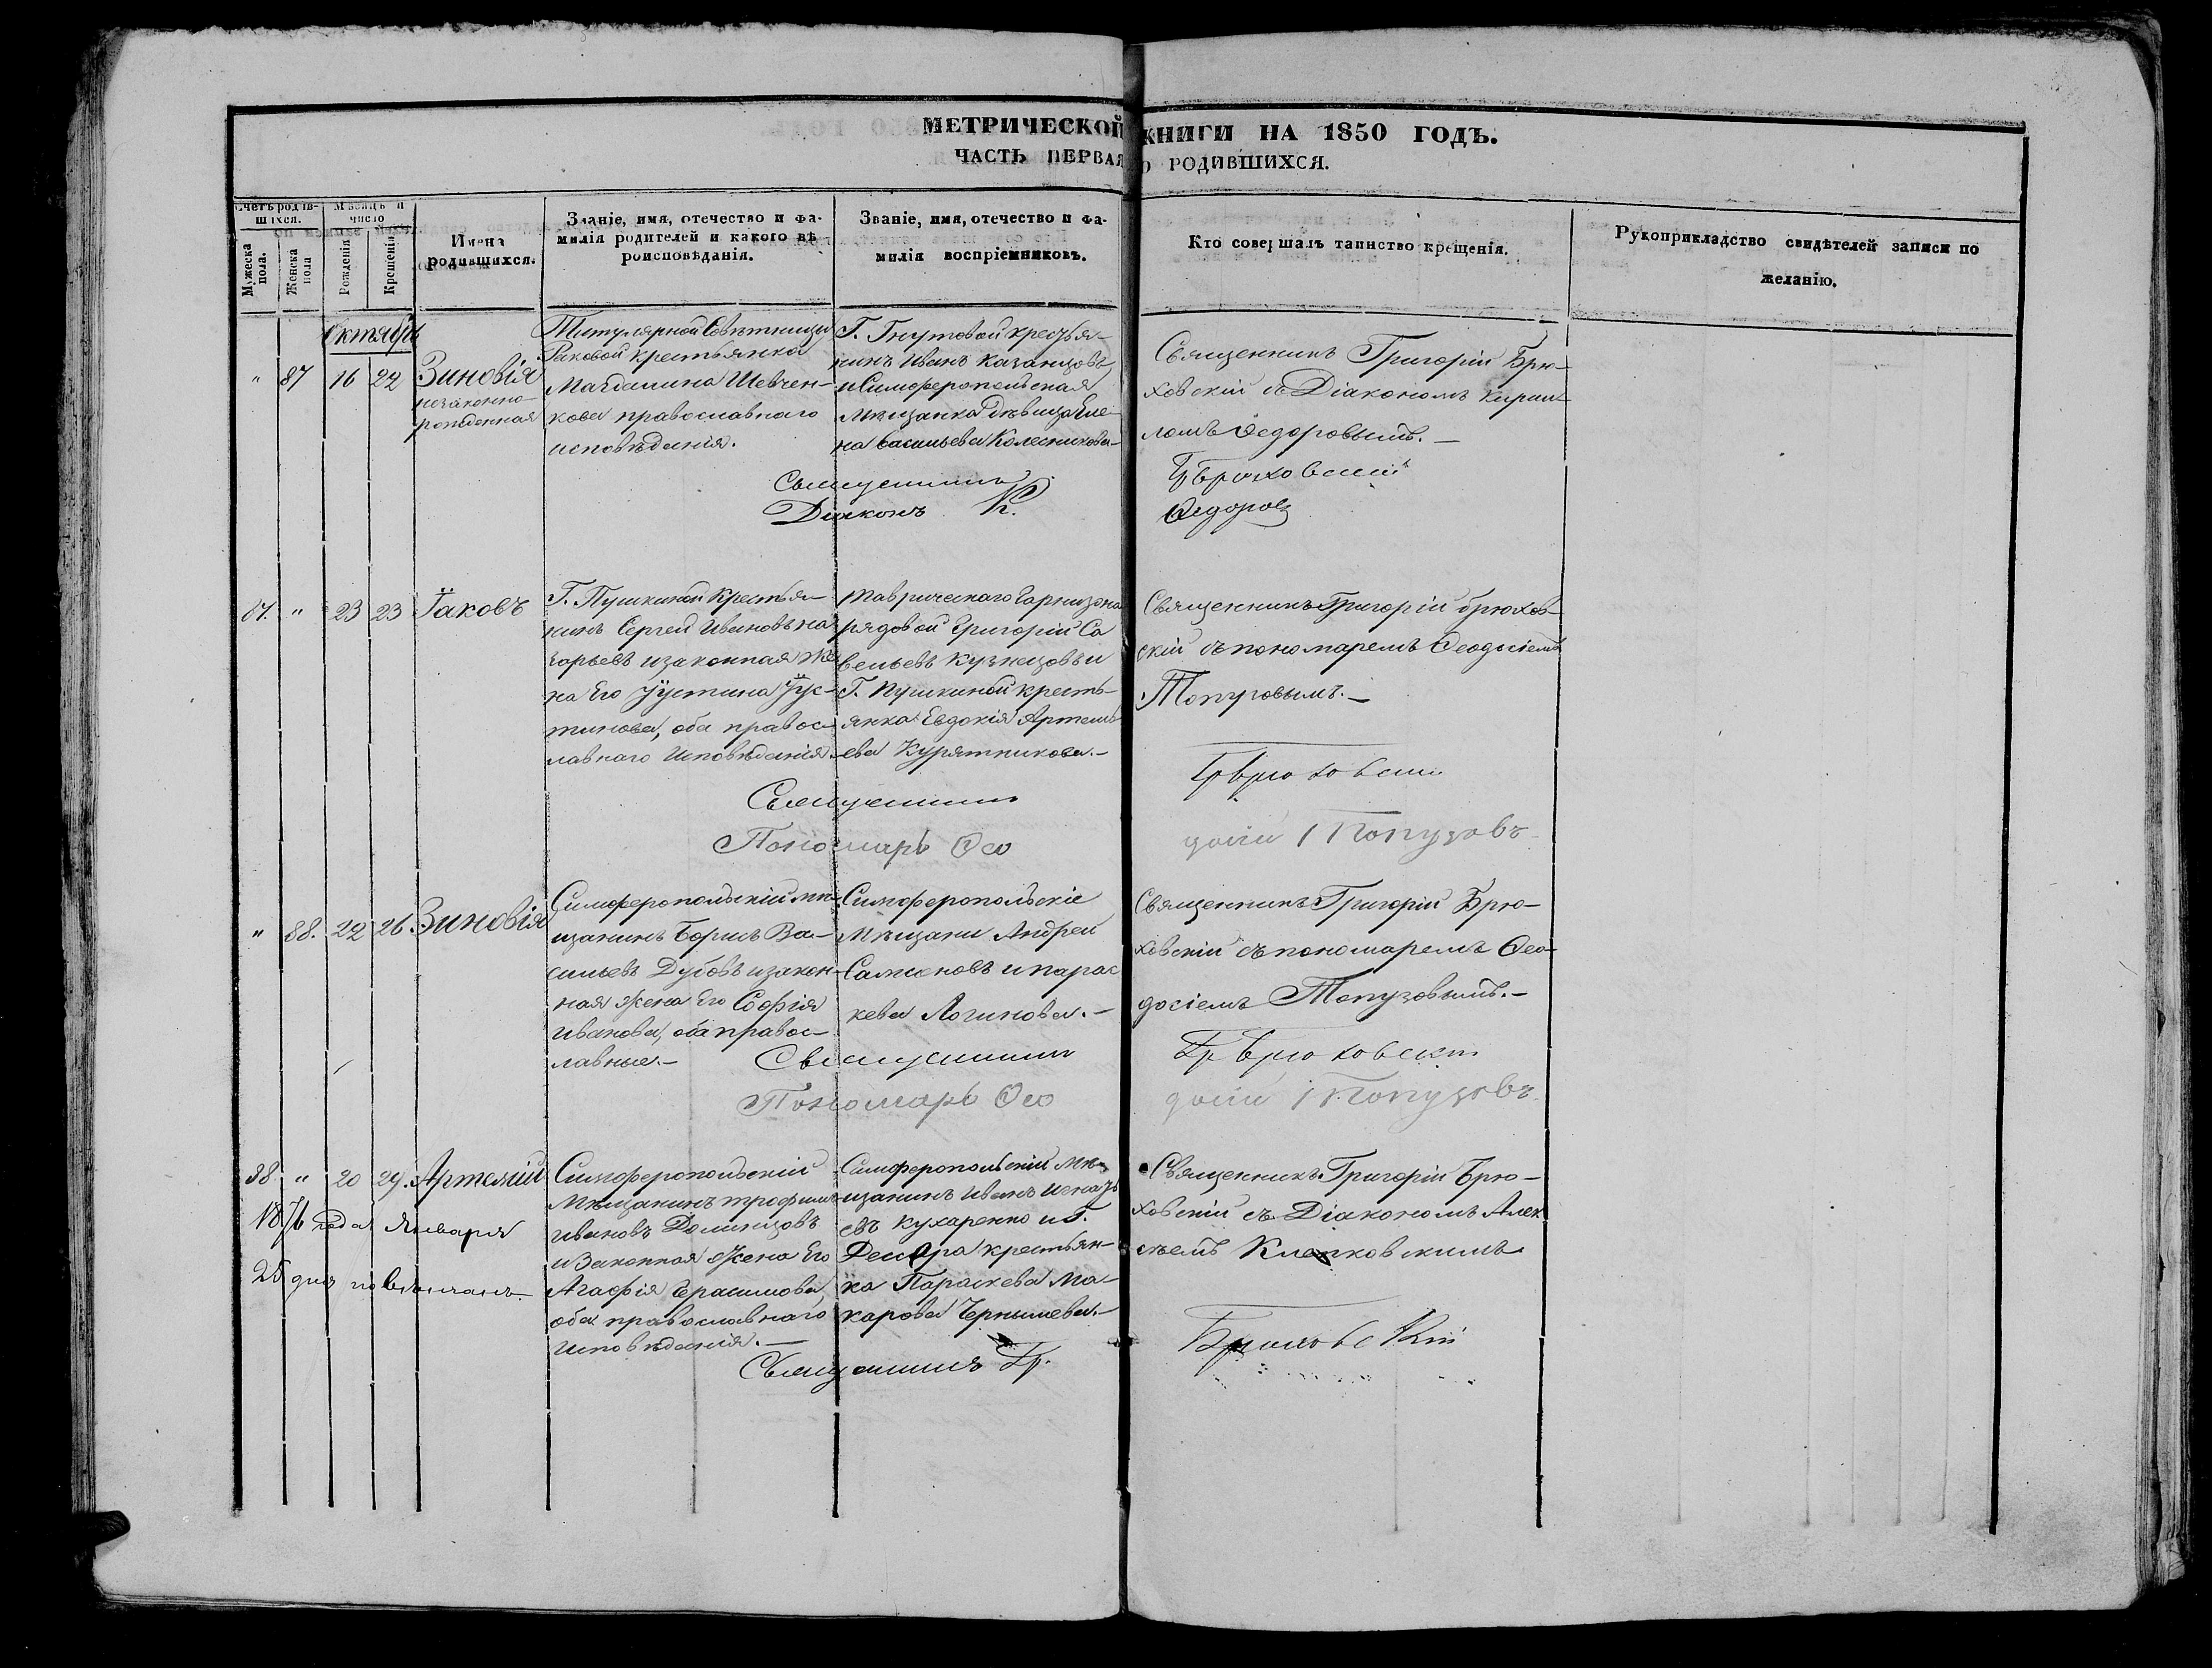 МЕТРИЧЕСКОЙ КНИГИ НА 1850 ГОДЪ.
ЧАСТЬ ПЕРВАЯ О РОДИВШИХСЯ.
Счетъ родив-
шихся.
Мѣсяцъ и
число
Мужеска
пола.
Женска
пола
Рожденія
Крещенія
Имена
родившихся.
Званіе, имя, отечество и фа-
милія родителей и какого вѣ-
роисповѣданія.
Званіе, имя, отечество и фа-
милія воспріемниковъ.
Кто совершалъ таинство крещенія.
Рукоприкладство свидѣтелей записи по
желанію.
Октябрь
" 87 16 22 Зиновія
незаконно-
рожденная
Титулярной Совѣтницы
Раковой крестьянка
Магдалина Шевчен-
кова православнаго
исповѣданія.
Г. Гнутовой крестья-
нинъ Иванъ Казанцовъ,
и Симферопольская
мѣщанка Дѣвица Еле-
на Васильева Колесникова
Священникъ Григорій Брю-
ховскій съ Діакономъ Кирил-
ломъ Ѳедоровымъ.
Священникъ Гр Брюховскій
Діаконъ К. Ѳедоровъ
87. " 23 23 Іаковъ
Г. Пушкиной Крестья-
нинъ Сергей Ивановъ
и законная Же-
на Его Іустина Іус-
тинова, оба правос-
лавнаго исповѣданія.
Таврическаго Гарнизона
рядовой Григорій Са
вельевъ Кузнецовъ и
Г. Пушкиной кресть-
янка Евдокія Артемь
ева Курятникова.
Священникъ Григорій Брюхов-
скій съ пономаремъ Ѳеодосіемъ
Топузовымъ.
Священникъ Гр Брюховскій
Пономарь Ѳео досій Топузовъ
" 88. 22 26 Зиновія
Симферопольскій мѣ-
щанинъ Борисъ Ва-
сильевъ Дубовъ и закон-
ная жена Его Софія
Иванова, оба правос-
лавные.
Симферопольскіе
Мѣщани Андрей
Самсоновъ и парас
кева Логинова.
Священникъ Григорій Брю-
ховскій съ пономаремъ Ѳео-
досіемъ Топузовымъ.
Священникъ Гр Брюховскій
Пономарь Ѳео досій Топузовъ
88 " 20 29. Артемій
1876 года Января
25 дня повѣнчанъ.
Симферопольскій
Мѣщанинъ трофимъ
Ивановъ
и Законная Жена Его
Агафія Герасимова,
оба православнаго
исповѣданія.
Симферопольскій мѣ-
щанинъ Иванъ Игнать
евъ Кухаренко и Г.
крестьян-
ка Параскева Ма-
карова Чернышева.
Священникъ Григорій Брю-
ховскій съ Діакономъ Алек
сѣемъ
Священникъ Гр. Брюховскій